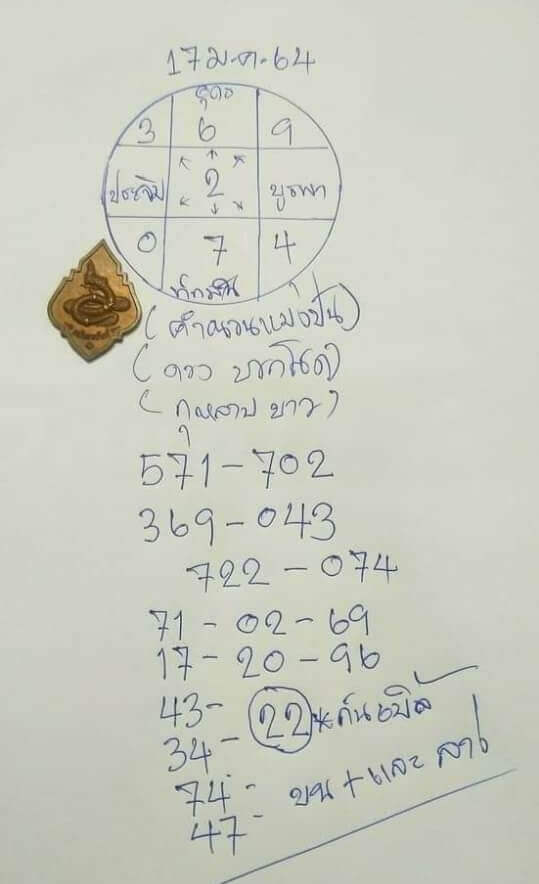 17 ม.ค. 64
อุดร
3 6 9
ประจิม 2 บูรพา
0 7 4
ทักษิณ
(คำนวนแม่งป่น)
(ดวง
(กุหลาบ ขาว)
571-702
369-043
722-074
71-02-69
17-20-96
43- 22
34-
74- บน + และ ล่าง
47-